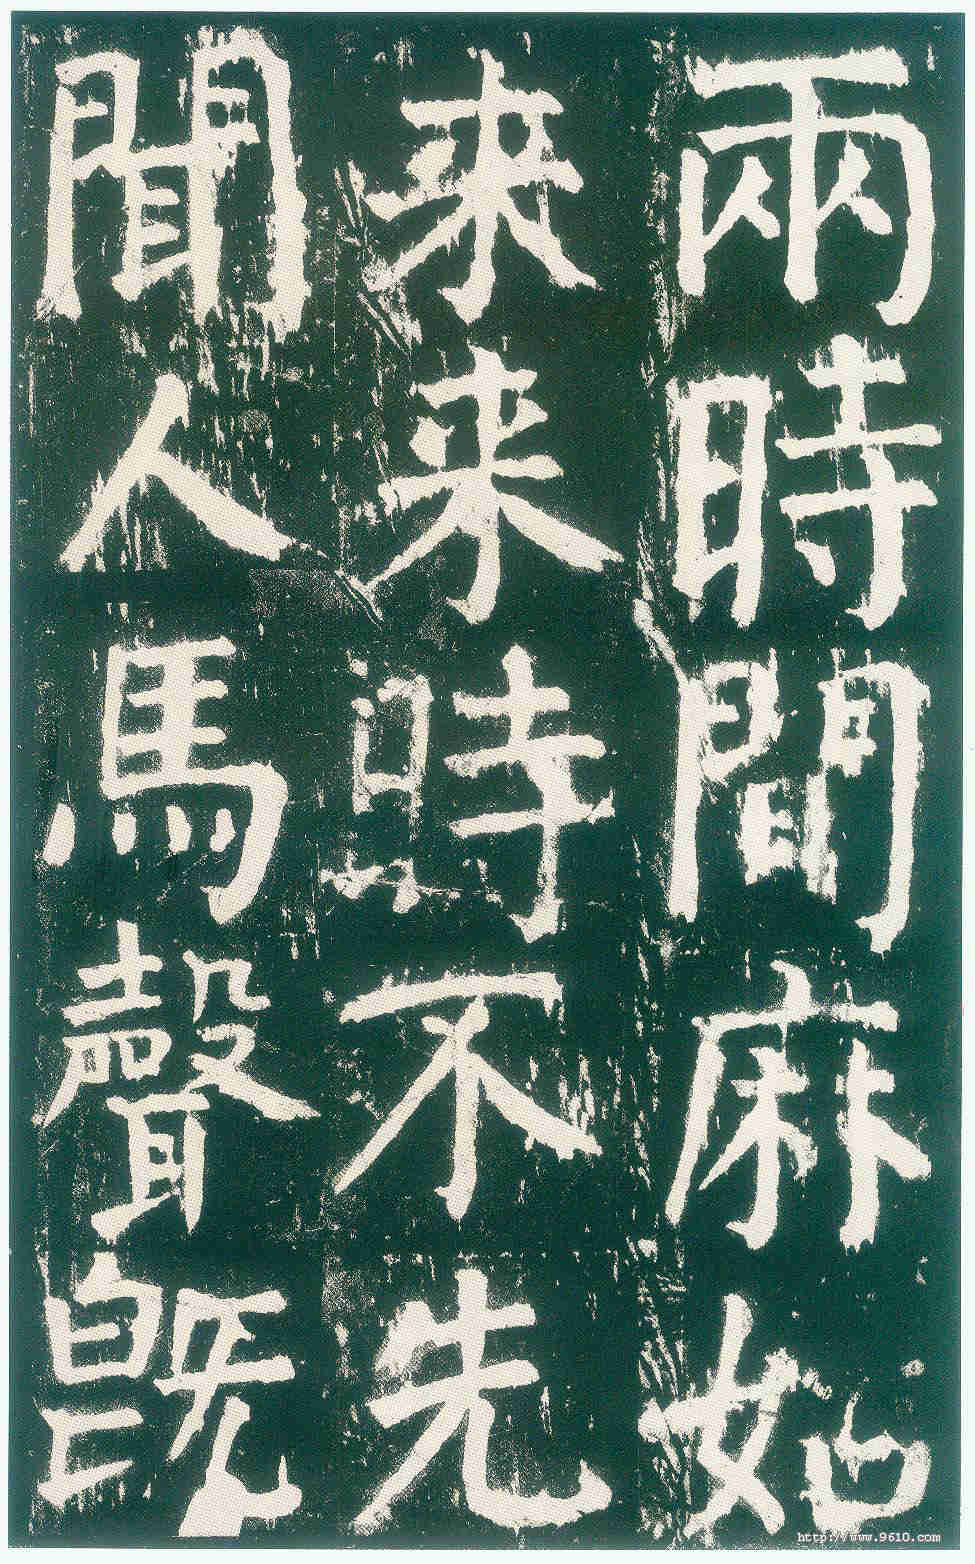 兩時間麻姑
来来時不先
聞人馬聲既
http://www.9610.com